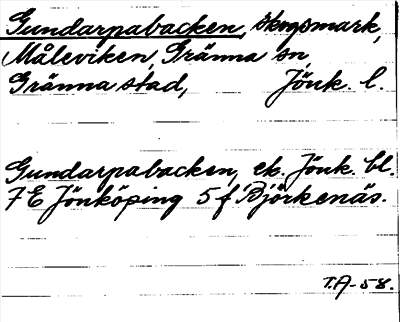 Gundarpabacken, skogsmark,
Måleviken, Gränna sn,
Gränna stad, Jönk. l.
Gundarpabacken, ek. Jönk. bl.
7E Jönköping 5 f Björkenäs.
T.A-58.